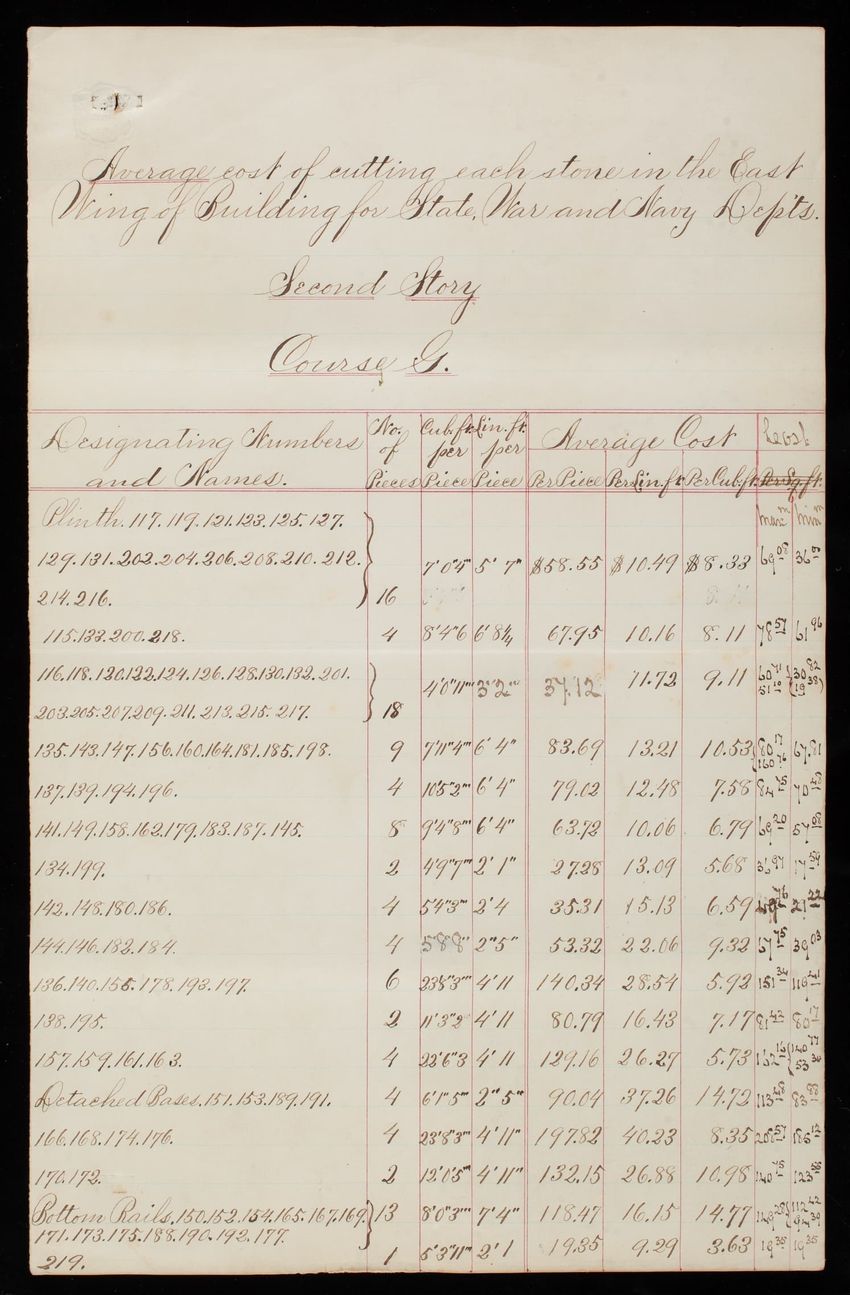 Average cost of cutting each stone in the East
Wing of Building for State, War and Navy Dep'ts.
Second Story
Course G.
Designating Numbers and Names. No. of Pieces Cub. ft. per Piece Lin. ft. per Piece Average Cost Per Piece Per Lin. ft. Per Cub. ft. Cost Per Sq. ft.
max m min m
Plinth. 117. 119. 121. 123. 125. 127.
129. 131. 202. 204. 206. 208. 210. 212. 7' 0" 4''' 5' 7" $58.55 $10.49 $8.33 69 08 36
214. 216. 16
115. 133. 200. 218. 4 8' 4" 6 6' 8¼ 67.95 10.16 8.11 78 57 61 96
116. 118. 120. 122. 124. 126. 128. 130. 132. 201. 4' 0" 11''' 3' 2" 37.12 11.72 9.11 60 71 30 82
203. 205. 207. 209. 211. 213. 215. 217. 18 51 10 (19 38)
135. 143. 147. 156. 160. 164. 181. 185. 198. 9 7' 11" 4''' 6' 4" 83.69 13.21 10.53 80 17 67.81
160 76
137. 139. 194. 196. 4 10' 5" 2''' 6' 4" 79.02 12.48 7.58 84 75 70 48
141. 149. 158. 162. 179. 183. 187. 145. 8 9' 4" 8''' 6' 4" 63.72 10.06 6.79 69 20 57 08
134. 199. 2 4' 9" 7''' 2' 1" 27.28 13.09 5.68 36 97 17 59
142. 148. 180. 186. 4 5' 4" 3''' 2' 4 35.31 15.13 6.59 76 27 22
144. 146. 182. 184. 4 5 8 8 2" 5" 53.32 22.06 9.32 67 75 39 03
136. 140. 155. 178. 193. 197. 6 23' 8" 3''' 4' 11 140.34 28.54 5.92 151 34 116 41
138. 195. 2 11' 3" 2 4' 11 80.79 16.43 7.17 81 42 80 17
157. 159. 161. 163. 4 22' 6" 3 4' 11 129.16 26.27 5.73 162 16 140 77
53 38
Detached Bases. 151. 153. 189. 191. 4 6' 1" 5''' 2" 5" 90.04 37.26 14.72 113 48 83 88
166. 168. 174. 176. 4 23' 8" 3''' 4' 11" 197.82 40.23 8.35 208 57 186 12
170. 172. 2 12' 0" 5''' 4' 11" 132.15 26.88 10.98 140 75 123 56
Bottom Rails, 150. 152. 154. 165. 167. 169. 13 8' 0" 3''' 7' 4" 118.47 16.15 14.77 149 28 112 42
171. 173. 175. 188. 190. 192. 177. 94 39
219. 1 5' 3" 11''' 2' 1 19.35 9.29 3.63 19 35 19 35